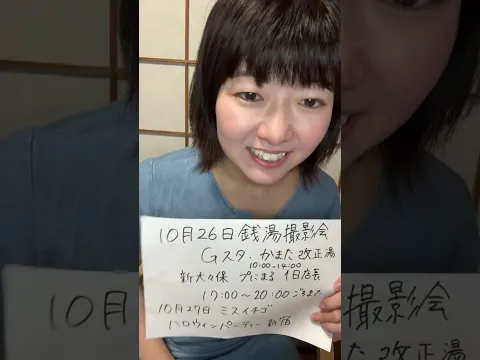 10月26日銭湯撮影会
Gスタ.かまた改正湯
10:00-14:00
新大久保 プにまる 1日店長
17:00〜20:00ごろまで
10月27日 ミスイチゴ
ハロウィンパーティー 新宿